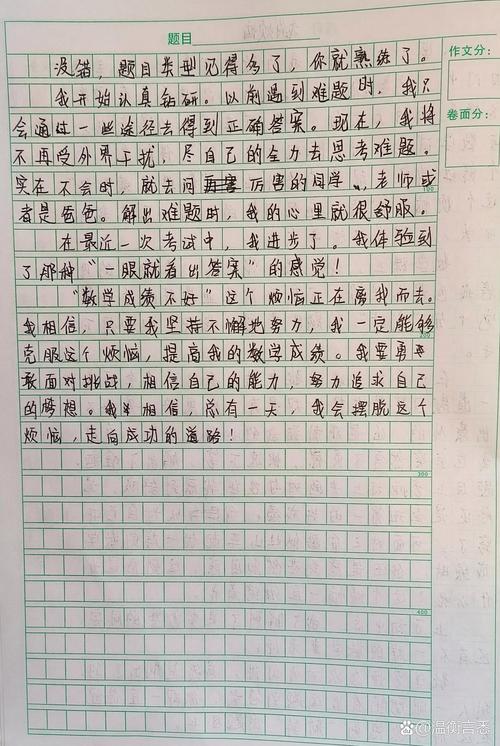 题目
作文分:
卷面分:
没错，题目类型记得多了，你就熟练了。
我开始认真钻研。以前遇到难题时，我只
会通过一些途径去得到正确答案。现在，我将
不再受外界干扰，尽自己的全力去思考难题。
实在不会时，就去问厉害的同学、老师或
者是爸爸。解出难题时，我的心里就很舒服。
100
在最近一次考试中，我进步了。我体验到
了那种“一眼就看出答案”的感觉！
“数学成绩不好”这个烦恼正在离我而去。
我相信，只要我坚持不懈地努力，我一定能够
200
克服这个烦恼，提高我的数学成绩。我要勇
敢面对挑战，相信自己的能力，努力追求自己
的梦想。我相信，总有一天，我会摆脱这个
烦恼，走向成功的道路！
300
400
@温衡言悉